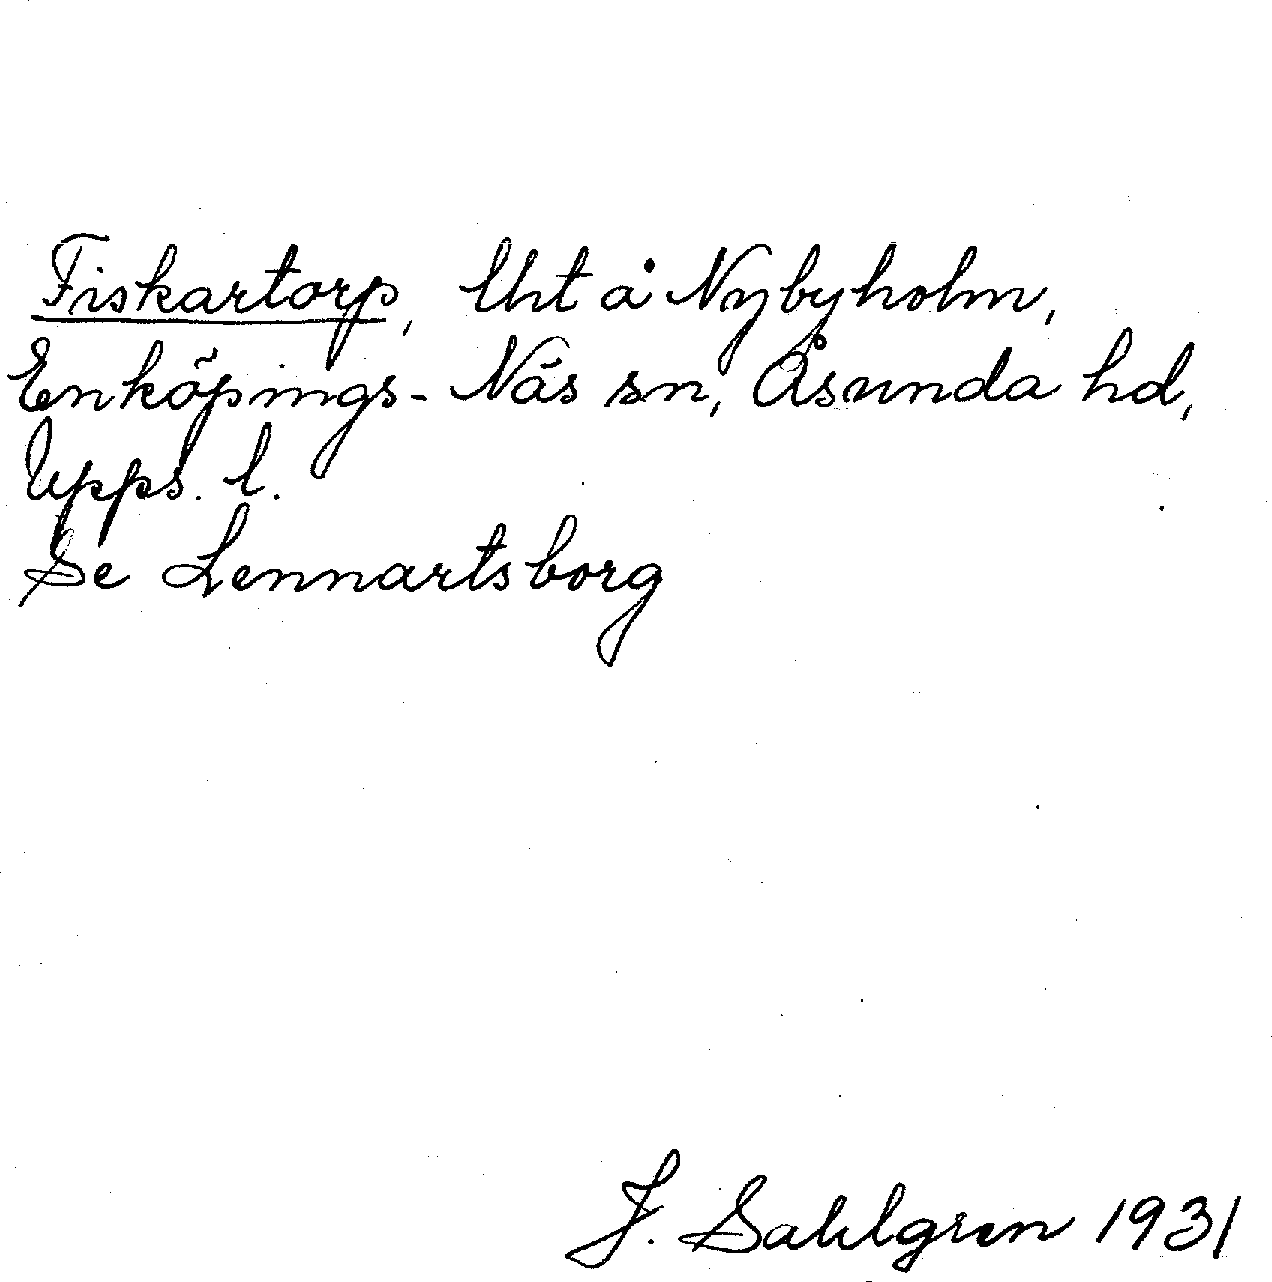 Fiskartorp, lht å Nybyholm,
Enköpings-Näs sn, Åsunda hd,
Upps. l.
Se Lennartsborg
J. Sahlgren 1931